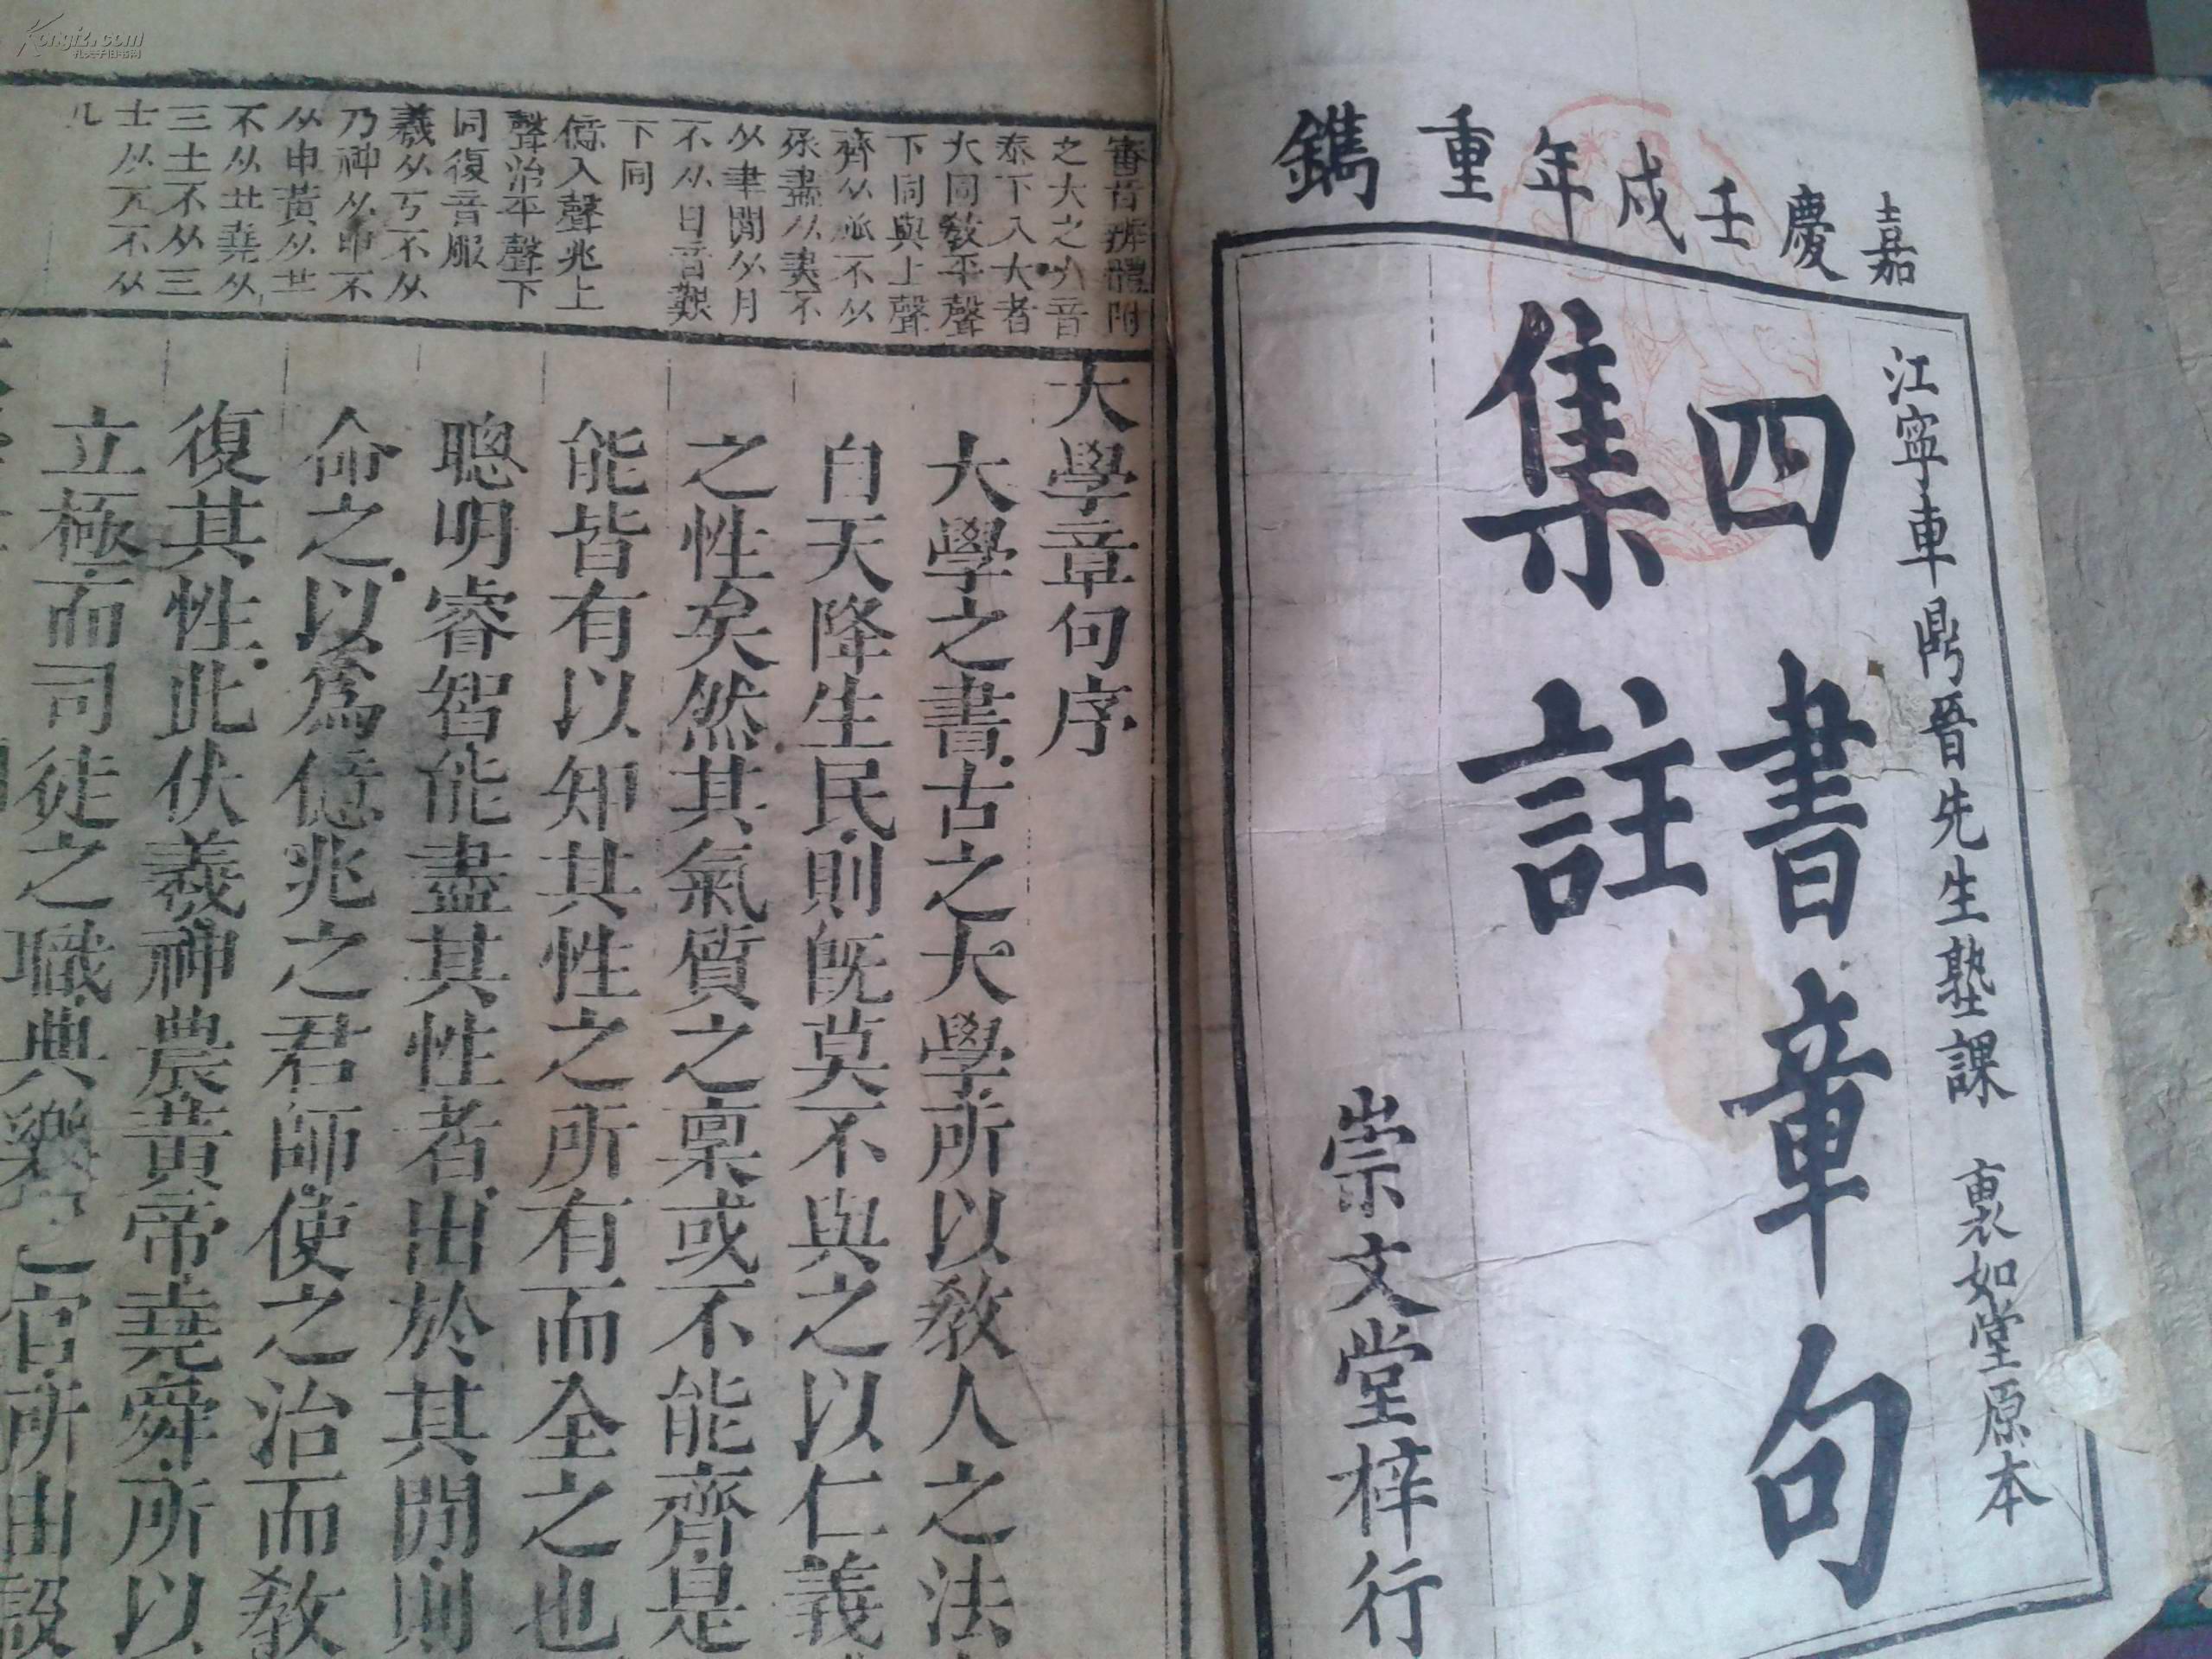 嘉慶壬戌年重鐫
江寧車鼎晉先生塾課 裏如堂原本
四書章句
集註
崇文堂梓行
審音辨體附
之大之大音
泰下入大者
大同敎平聲
下同與上聲
齊从㡭不从
盡从聿不
从聿閒从月
不从日音艱
下同
億入聲兆上
聲治平聲下
同復音服
羲从丂不从
乃神从申不
从申黃从廿
不从艹堯从
三土不从三
士从兀不从
儿
大學章句序
大學之書古之大學所以敎人之法
自天降生民則旣莫不與之以仁義
之性矣然其氣質之稟或不能齊是
能皆有以知其性之所有而全之也
聰明睿智能盡其性者出於其閒則
命之以爲億兆之君師使之治而敎
復其性此伏羲神農黃帝堯舜所以
立極而司徒之職典樂之官所由設
Kongfz.com
孔夫子旧书网